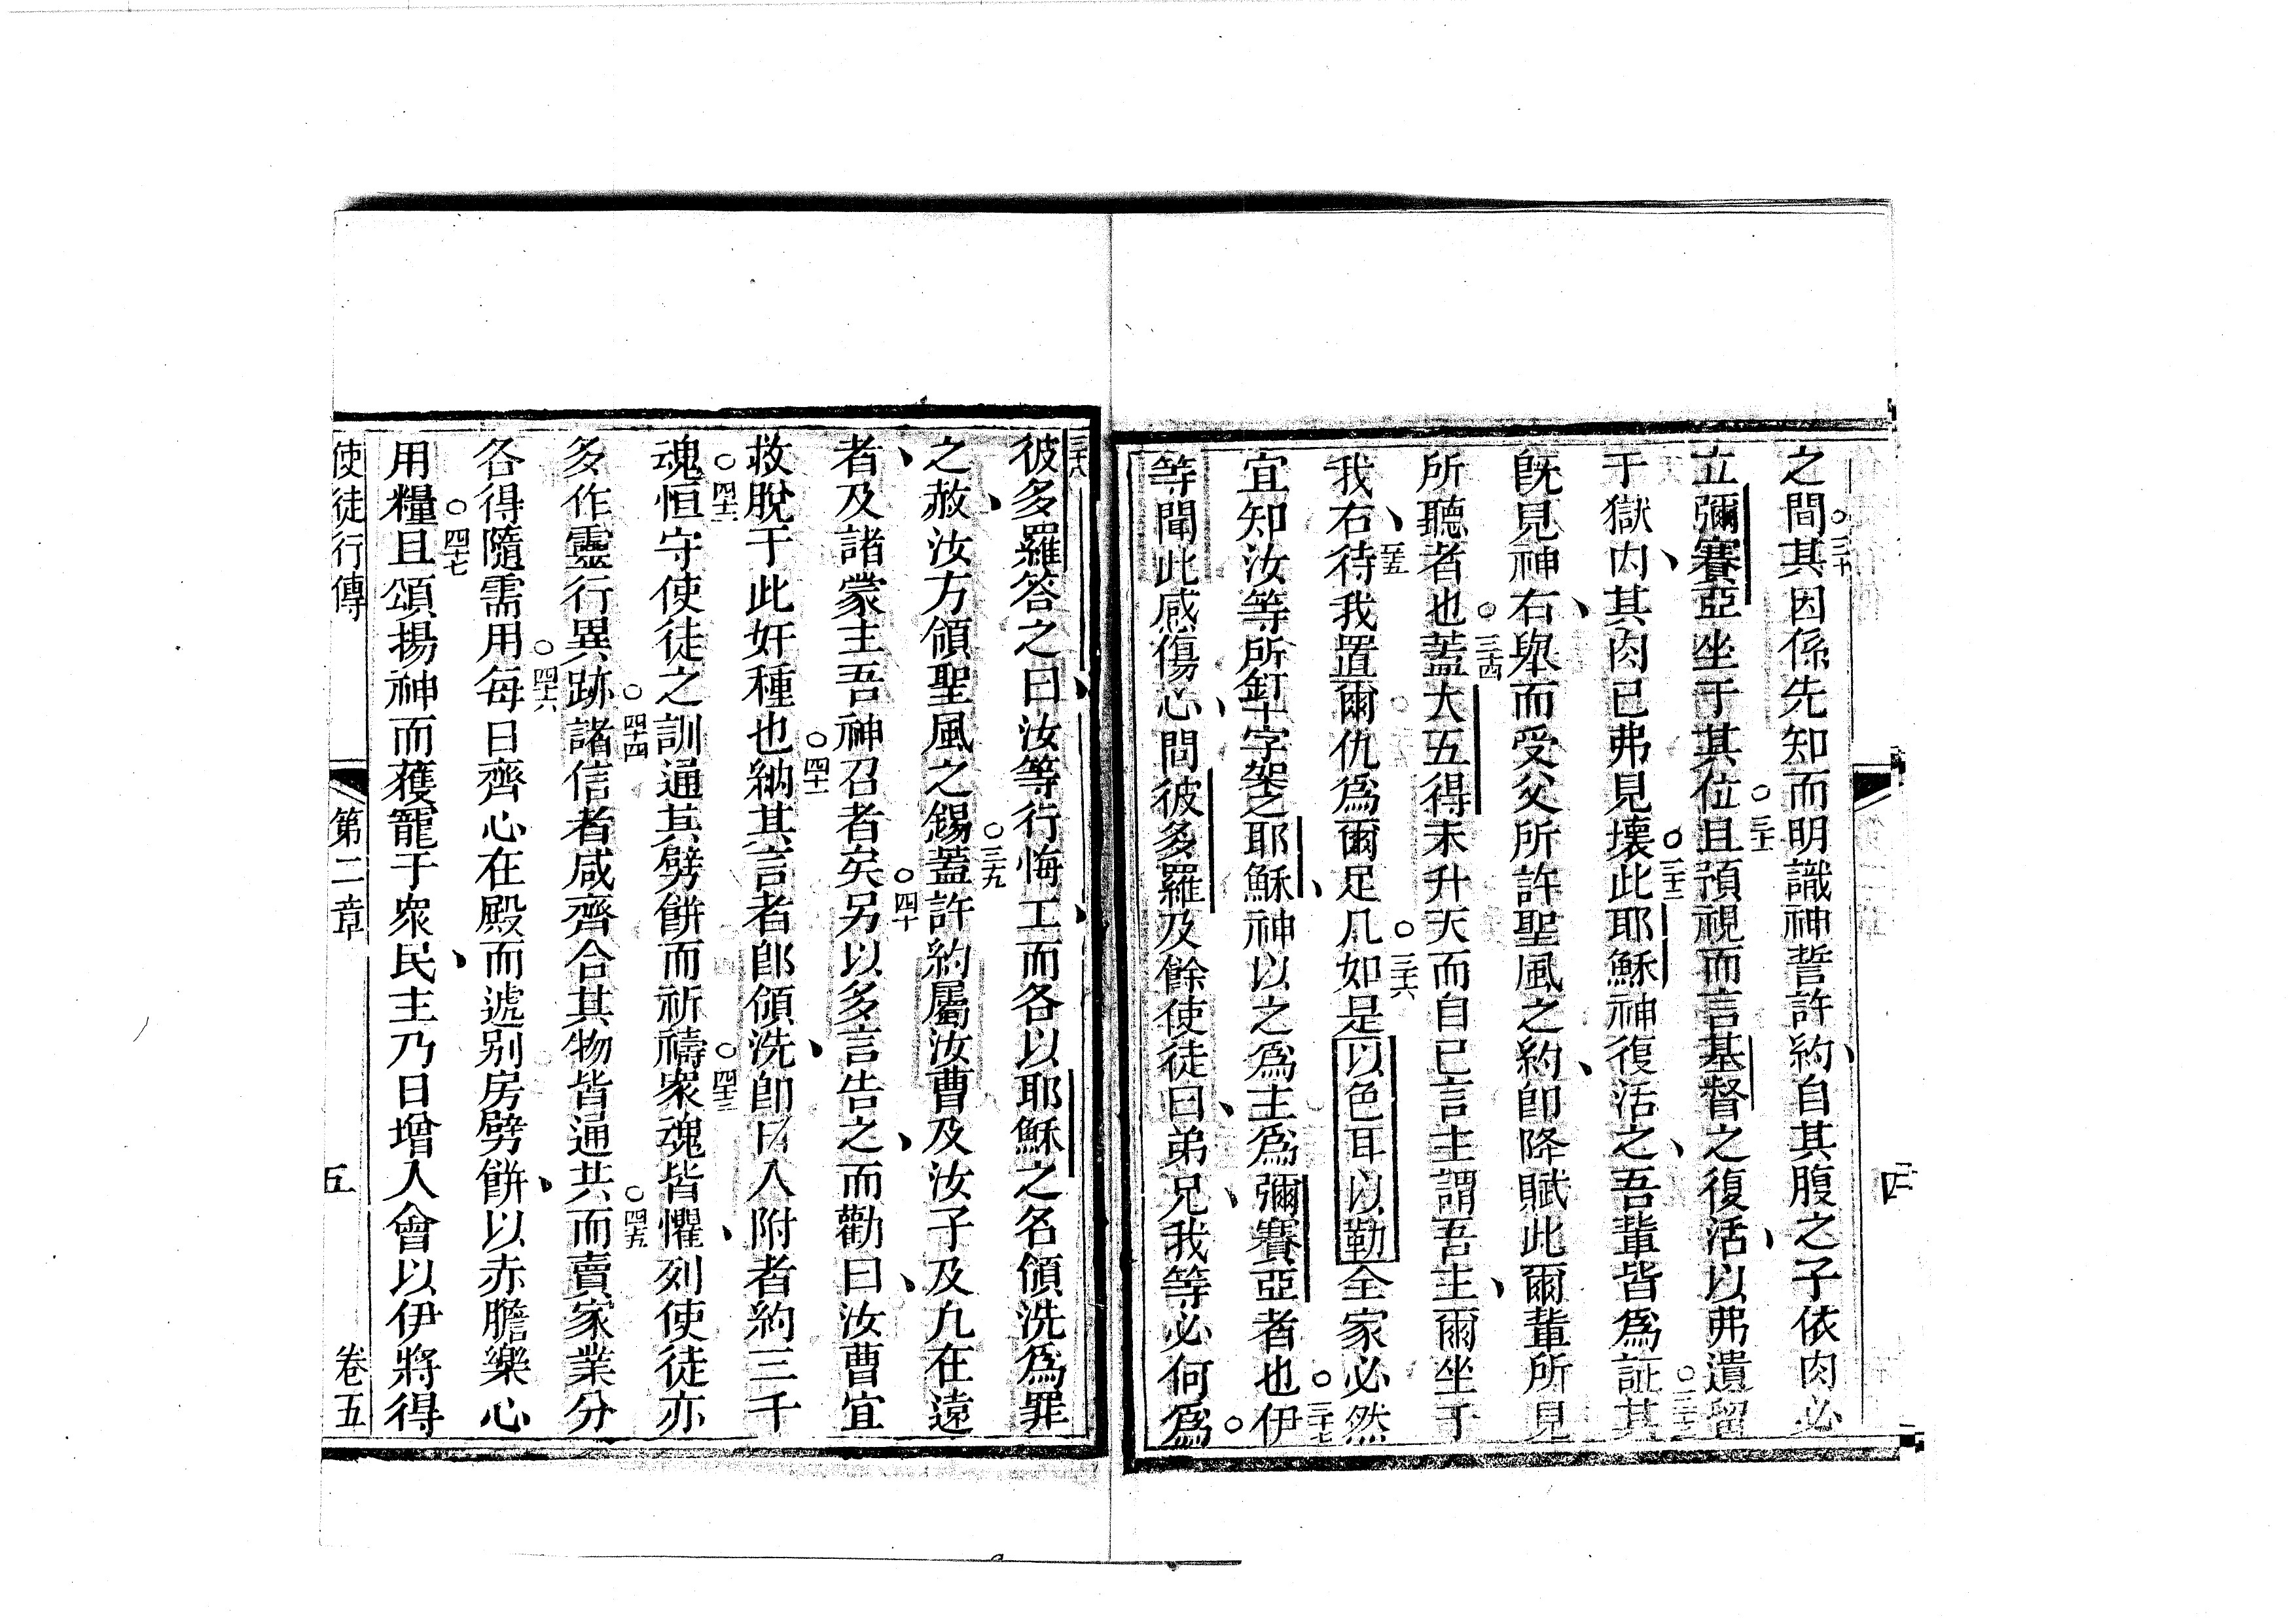 之間其因係先知而明識神誓許約自其腹之子依肉必
三十
立彌賽亞坐于其位且預視而言基督之復活以弗遺留
三十一
于獄內其肉已弗見壞此耶穌神復活之吾輩皆爲証其
三十二
三十三
既見神右舉而受父所許聖風之約即降賦此爾輩所見
所聽者也蓋大五得未升天而自己言主謂吾主爾坐于
三十四
我右待我置爾仇爲爾足几如是以色耳以勒全家必然
三十五
三十六
宜知汝等所釘十字架之耶穌神以之爲主爲彌賽亞者也伊
三十七
等聞此感傷心問彼多羅及餘使徒曰弟兄我等必何爲
四
三十八
彼多羅答之曰汝等行悔工而各以耶穌之名領洗爲罪
之赦汝方領聖風之錫蓋許約屬汝曹及汝子及凡在遠
三十九
者及諸蒙主吾神召者矣另以多言告之而勸曰汝曹宜
四十
救脫于此奸種也納其言者即領洗即日入附者約三千
四十一
魂恒守使徒之訓通其劈餅而祈禱衆魂皆懼列使徒亦
四十二
四十三
多作靈行異跡諸信者咸齊合其物皆通共而賣家業分
四十四
四十五
各得隨需用每日齊心在殿而遞別房劈餅以赤膽樂心
四十六
用糧且頌揚神而獲寵于衆民主乃日增入會以伊將得
四十七
使徒行傳
第二章
五
卷五